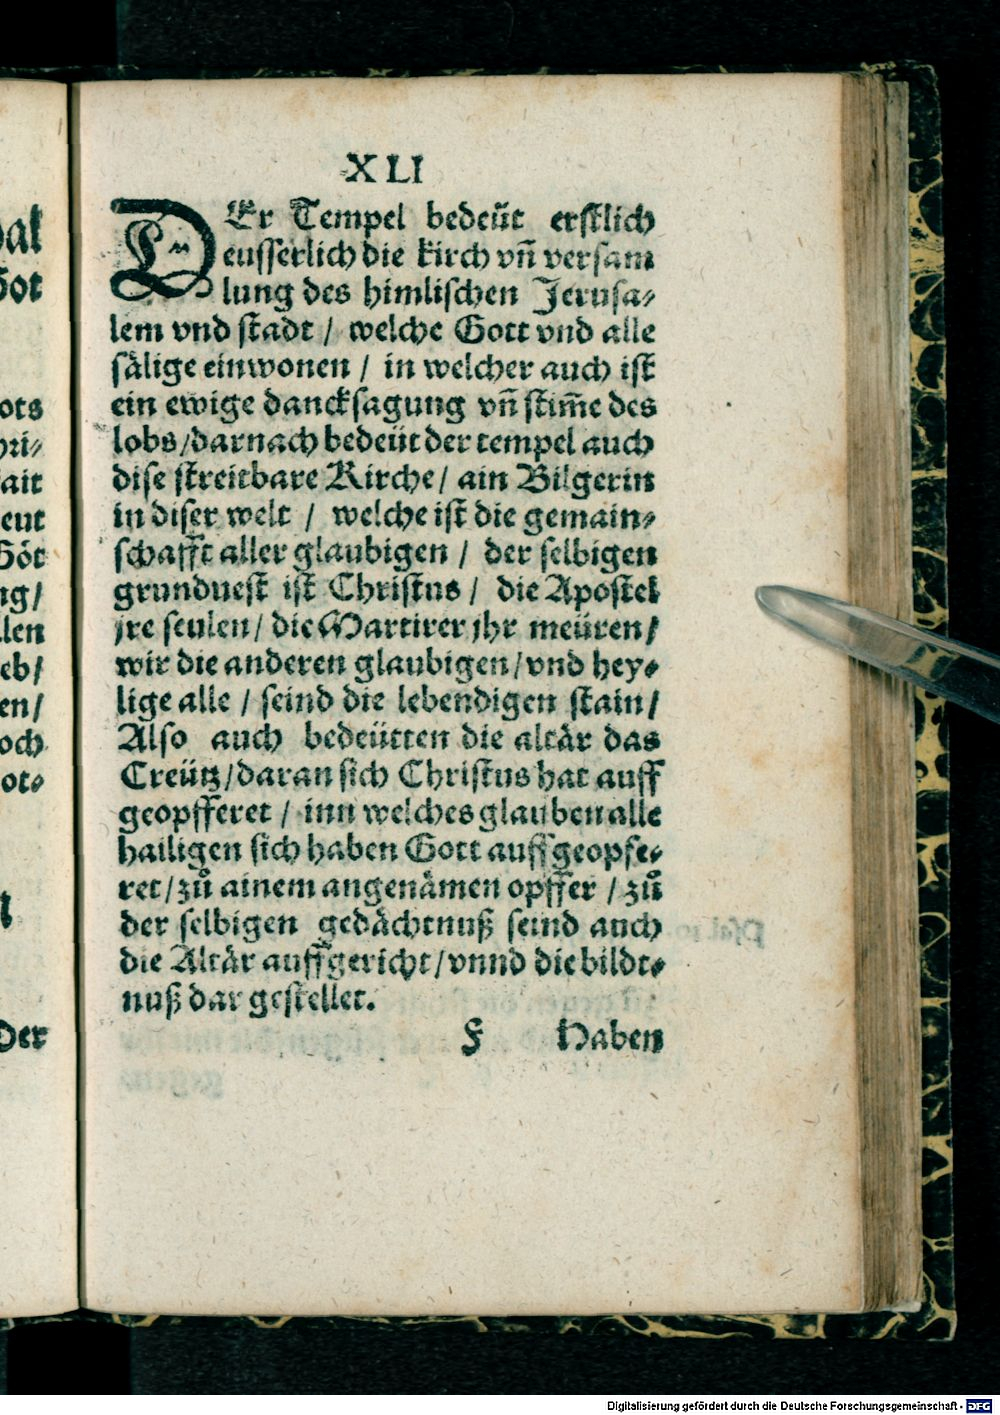 XLI
DEr Tempel bedeüt erstlich
eusserlich die kirch vñ versam
lung des himlischen Jerusa-
lem vnd stadt / welche Gott vnd alle
sälige einwonen / in welcher auch ist
ein ewige dancksagung vñ stim̃e des
lobs/darnach bedeüt der tempel auch
dise streitbare Kirche/ ain Bilgerin
in diser welt / welche ist die gemain-
schafft aller glaubigen / der selbigen
grunduest ist Christus / die Apostel
jre seulen/ die Martirer jhr meüren/
wir die anderen glaubigen/vnd hey-
lige alle / seind die lebendigen stain/
Also auch bedeütten die altär das
Creütz/daran sich Christus hat auff
geopfferet / inn welches glauben alle
hailigen sich haben Gott auffgeopfe-
ret/zů ainem angenämen opffer / zů
der selbigen gedächtnuß seind auch
die Altär auffgericht/vnnd die bildt-
nuß dar gestellet.
F Haben
ots
ait
eut
Göt
ng/
llen
eb/
en/
och
ot-
Der
Digitalisierung gefördert durch die Deutsche Forschungsgemeinschaft - DFG